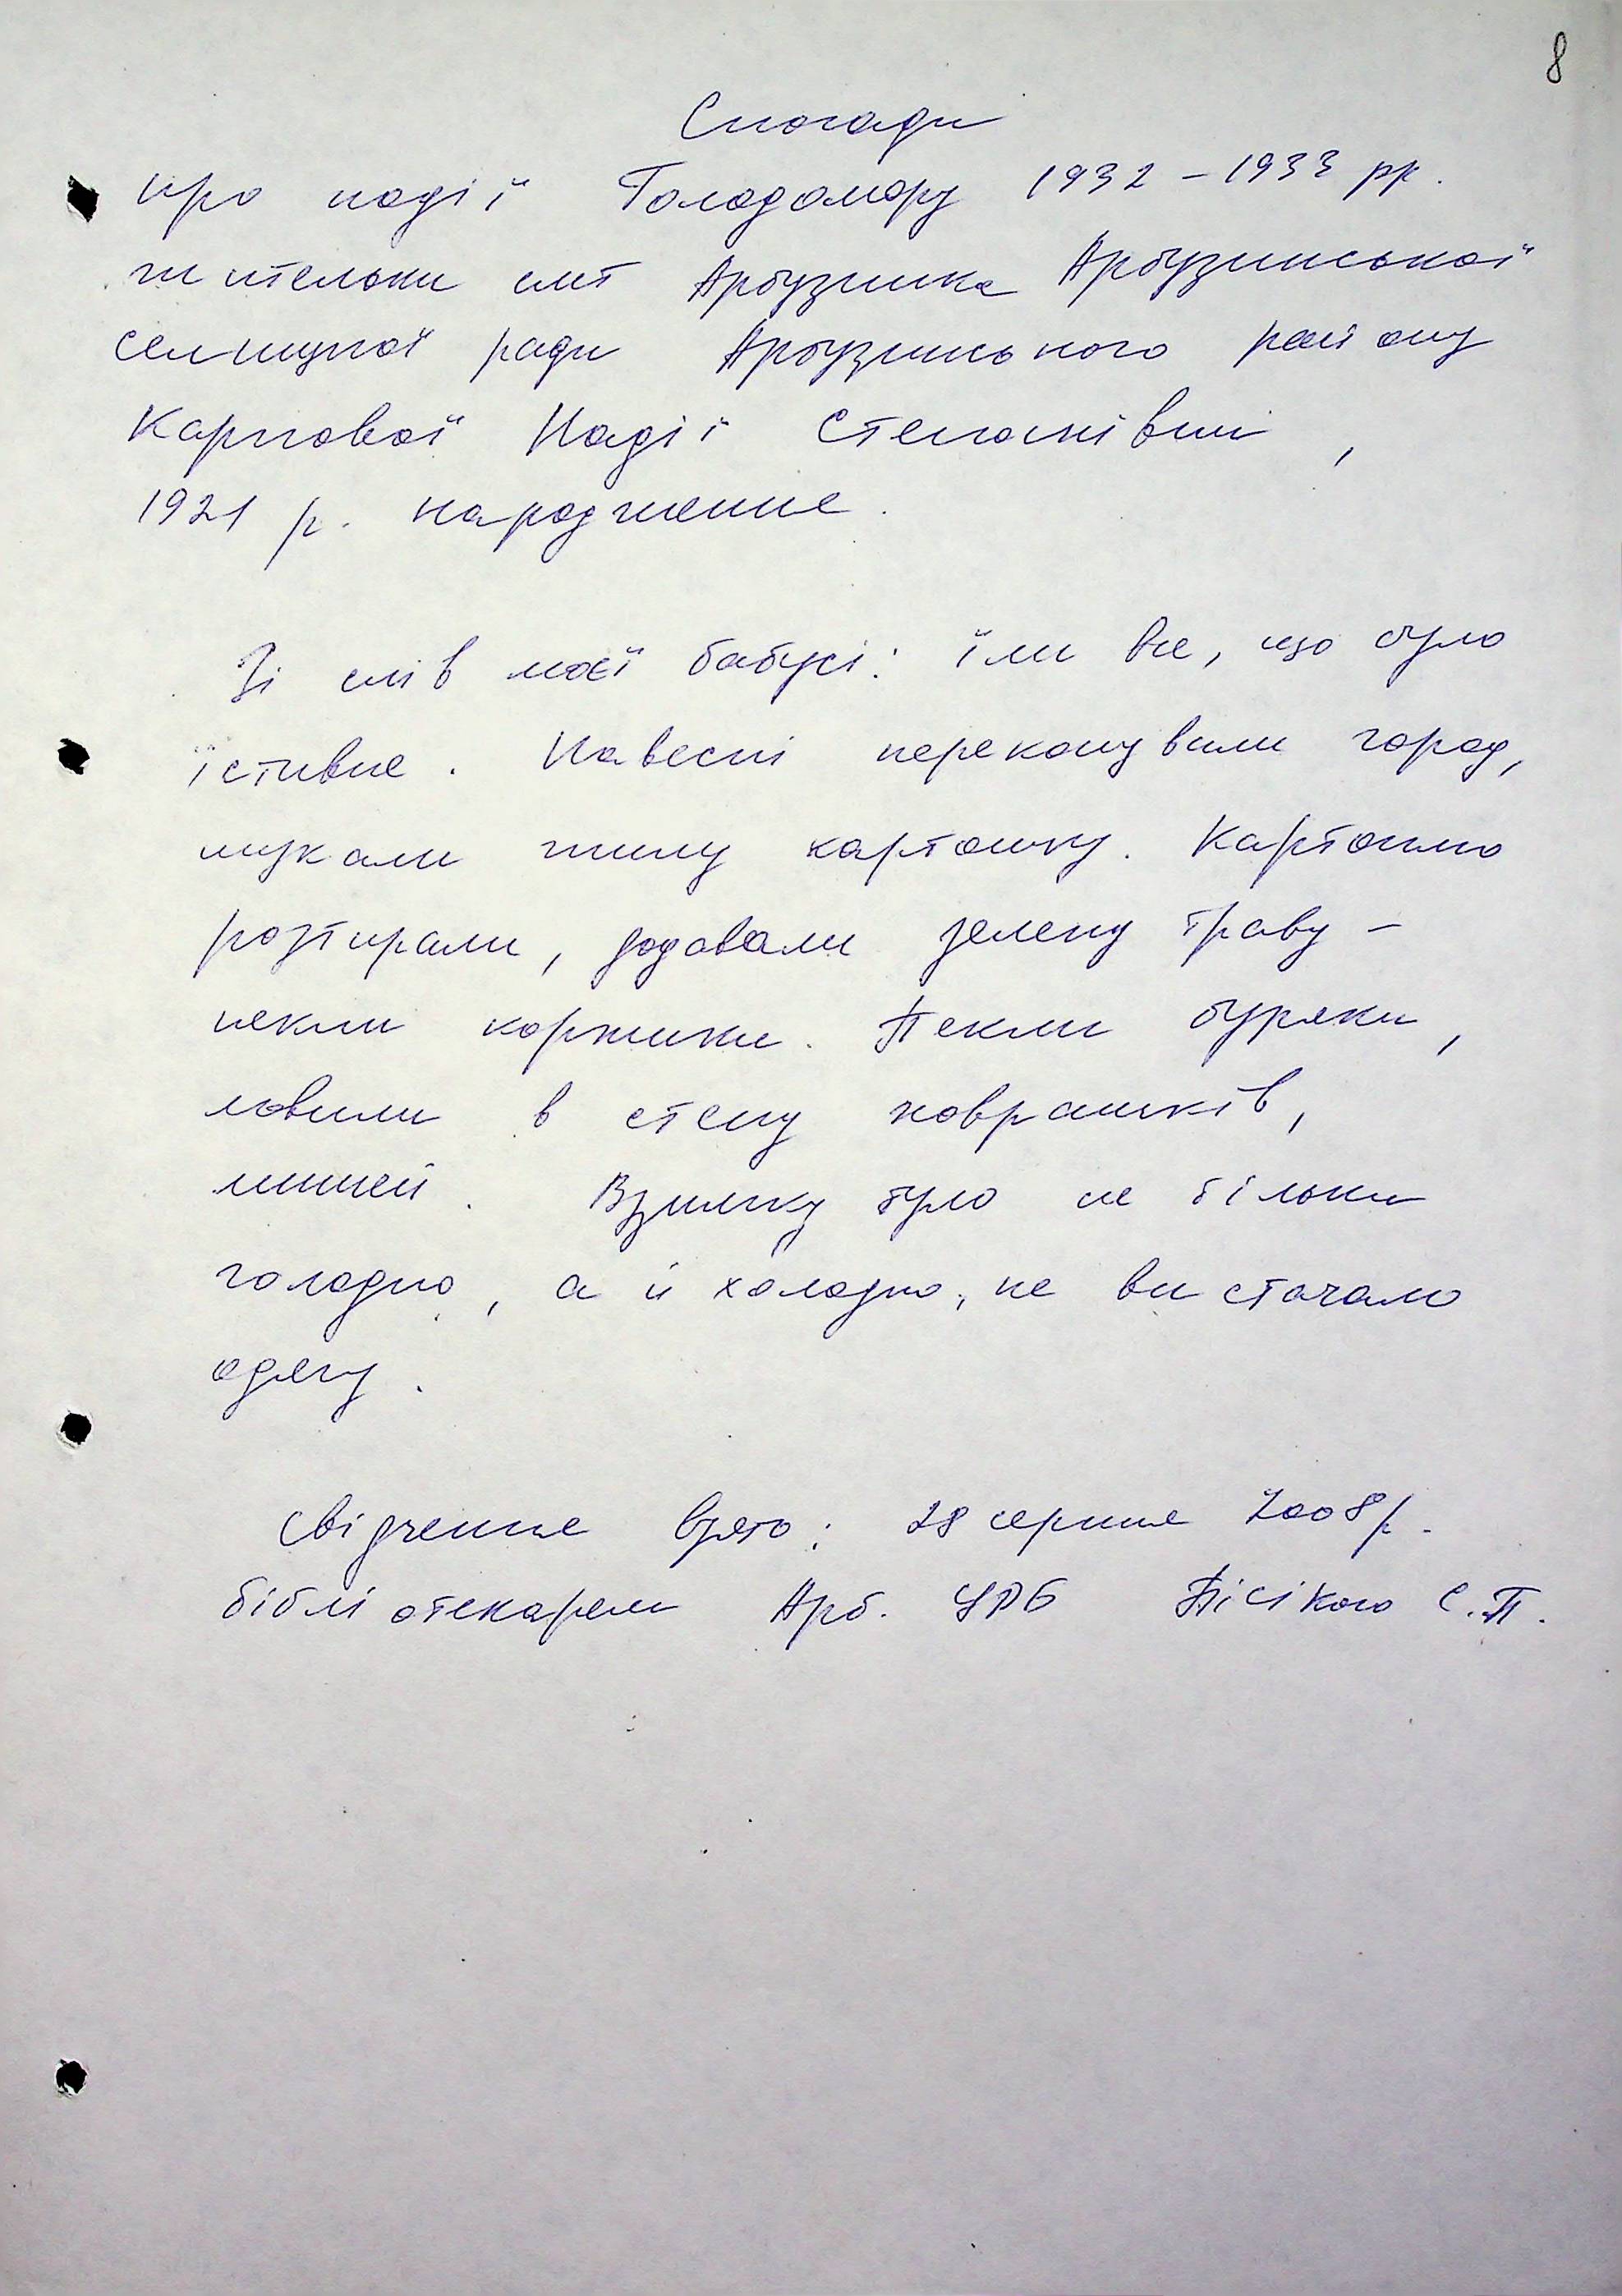 8
Спогади
про події Голодомору 1932-1933 рр.
жительки смт Арбузинка Арбузинської
селищної ради Арбузинського району
Карпової Надії Степанівни,
1921 р. народження.
Зі слів моєї бабусі: їли все, що було
їстивне. Навесні перекопували город,
шукали гнилу картошку. Картоплю
розтирали, додавали зелену траву -
пекли коржики. Пекли буряки,
ловили в степу ховрашків,
мишей. Взимку було не тільки
голодно, а й холодно, не вистачало
одягу.
Свідчення взято: 28 серпня 2008 р.
бібліотекарем Арб. ЦРБ С.П.